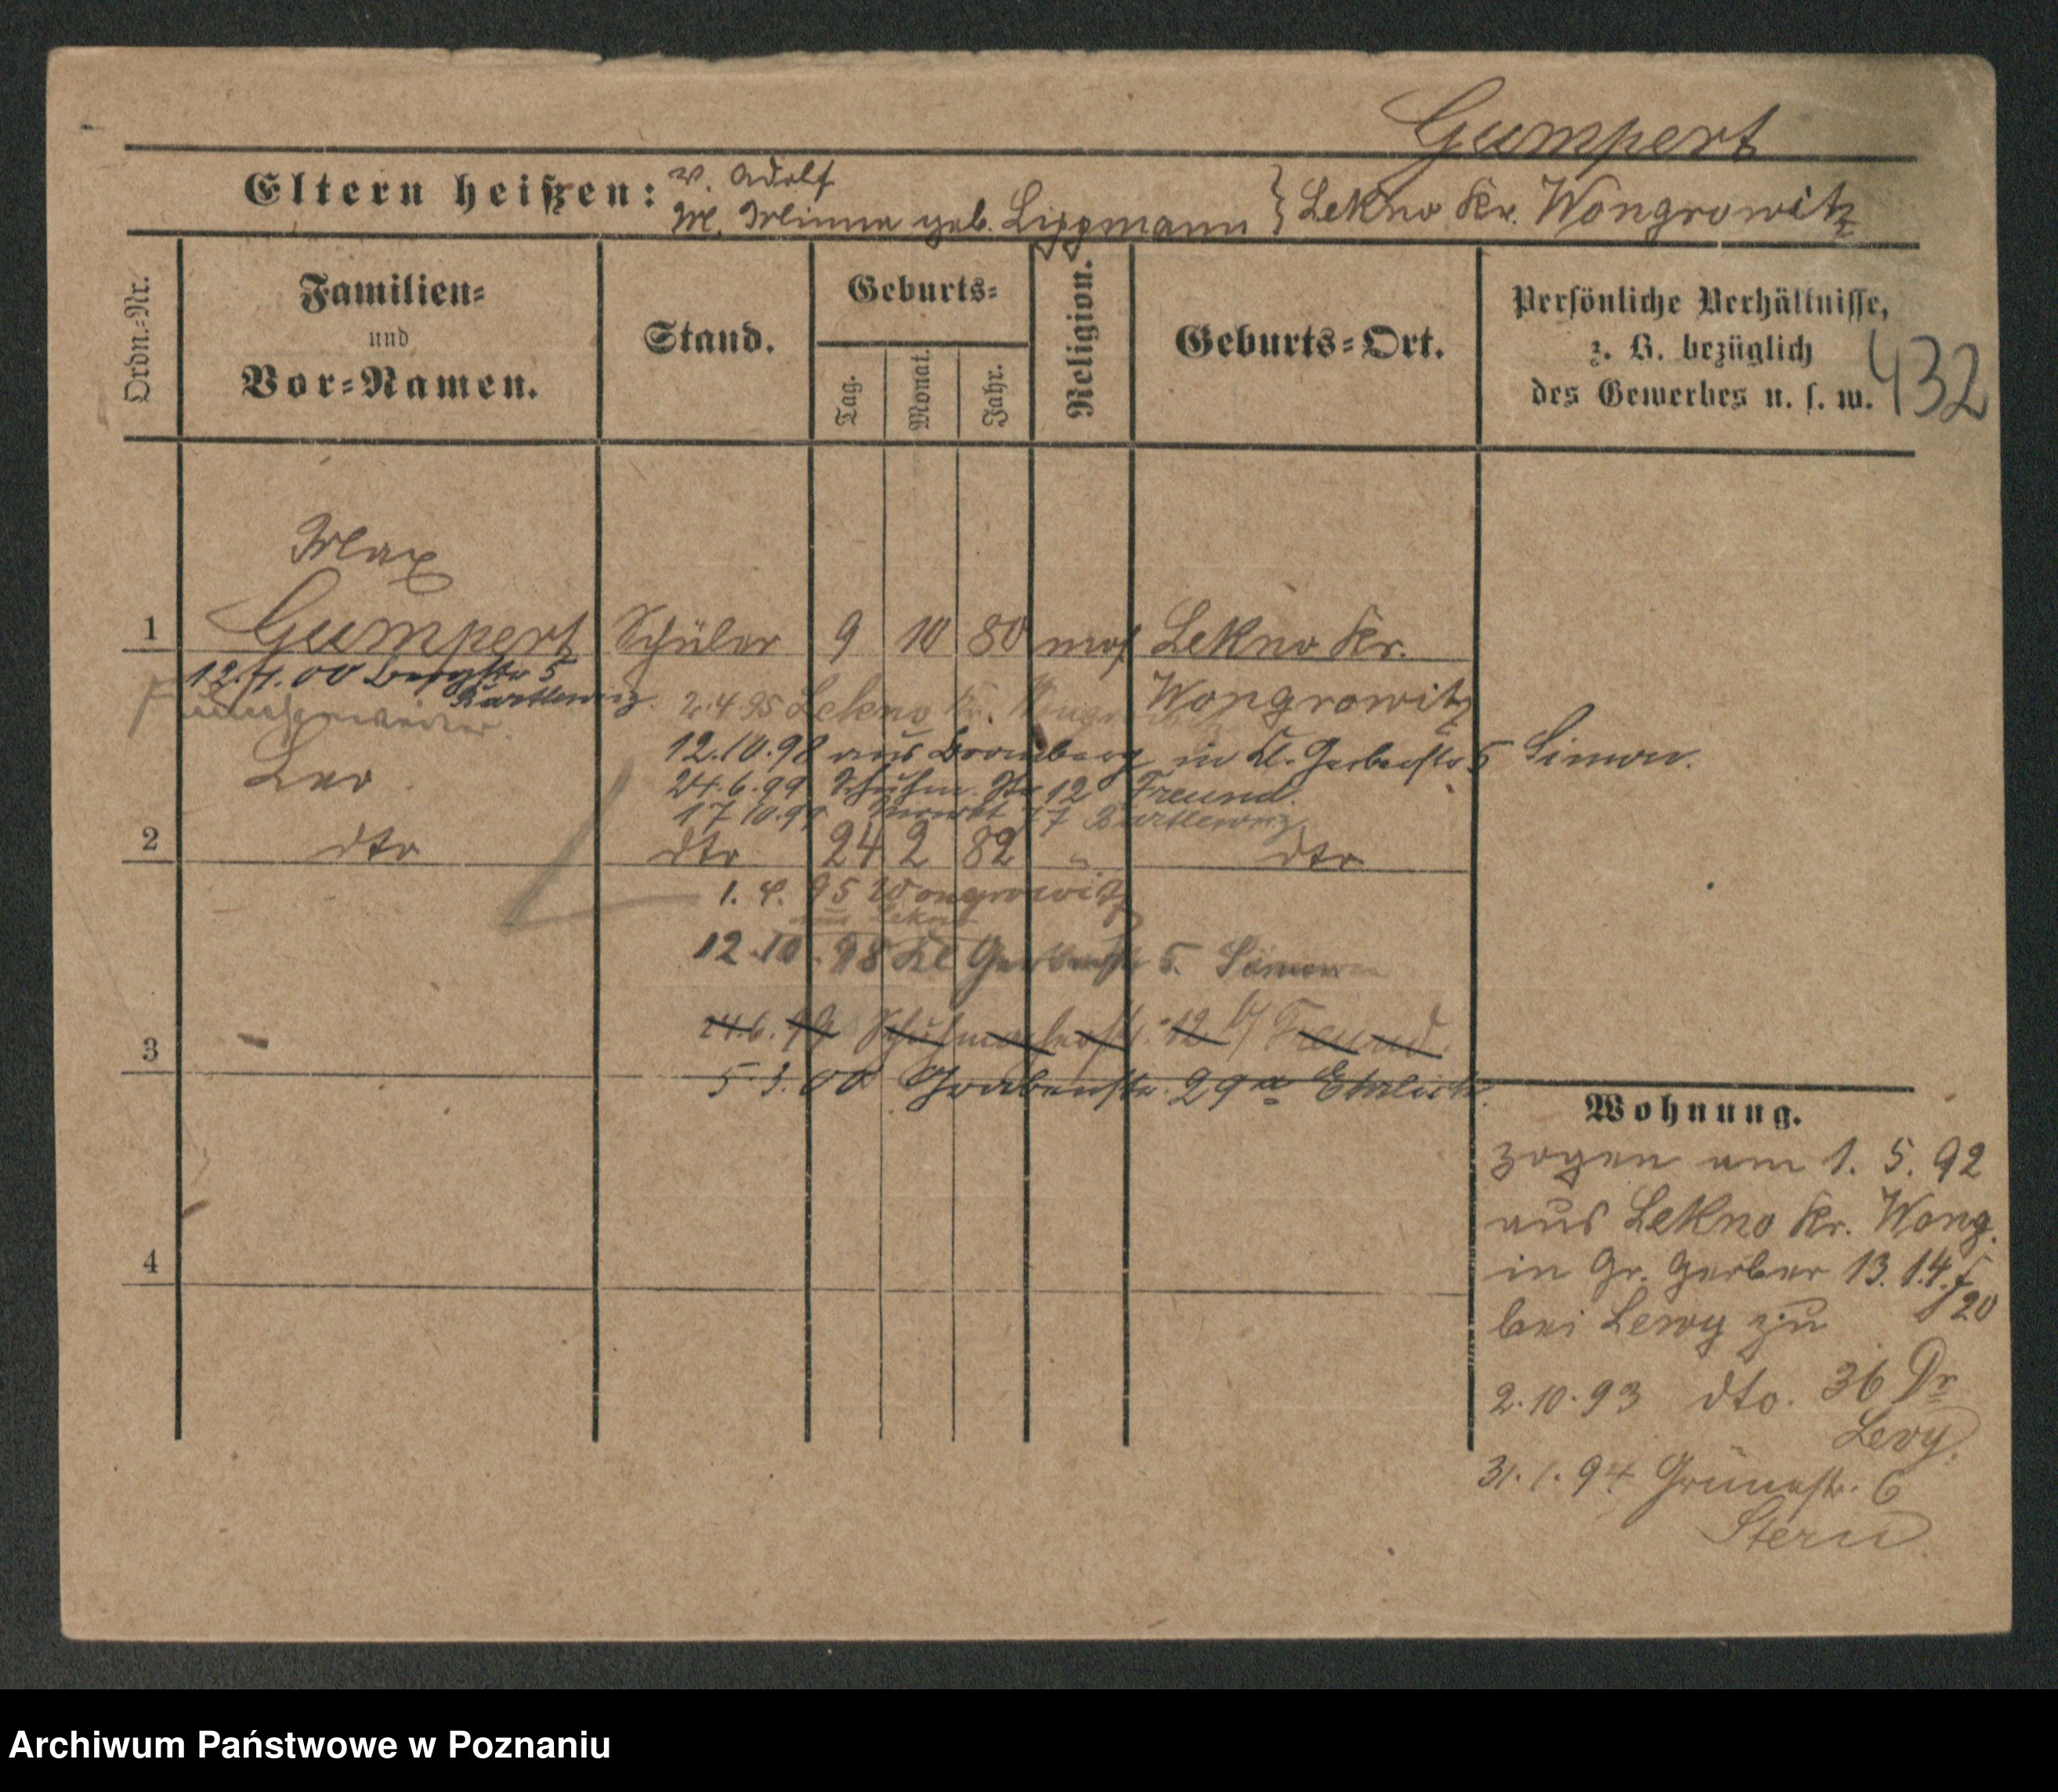 Gumpert
Eltern heißen: V. Adolf
M. Minna geb. Lippmann } Lekno Kr. Wongrowitz
Ordn.-Nr.
Familien-
und
Vor-Namen.
Stand.
Geburts-
Tag.
Monat.
Jahr.
Religion.
Geburts-Ort.
Persönliche Verhältnisse,
z. B. bezüglich
des Gewerbes u. s. w.
432
Max
1 Gumpert Schüler 9 10 80 mos. Lekno Kr.
Wongrowitz
00 Bergstr 5
Bartlewicz
2.4.95 Lekno Kr. Wongrowitz
12.10.98 aus Bromberg in Kl. Gerberstr 5 Simon.
24.6.99 Schuhm. Str 12 Freund.
17 10.99 17 Bartlewicz
Leo
2 dto dto 24 2 82 " dto
1. 4. 95 Wongrowitz
aus Lekno
12.10.98 Kl Gerberstr 5. Simon
24.6.99 Schuhmacherstr. 12 b/ Freund.
3
5.3.00 Grabenstr. 29a Ehrlich.
4
Wohnung.
zogen am 1. 5. 92
aus Lekno Kr. Wong.
in Gr. Gerber 13. 14. f
20
bei Lewy zu
2.10.93 dto. 36 Dr
Levy.
31.1.94 Grünestr. 6
Stern
Archiwum Państwowe w Poznaniu